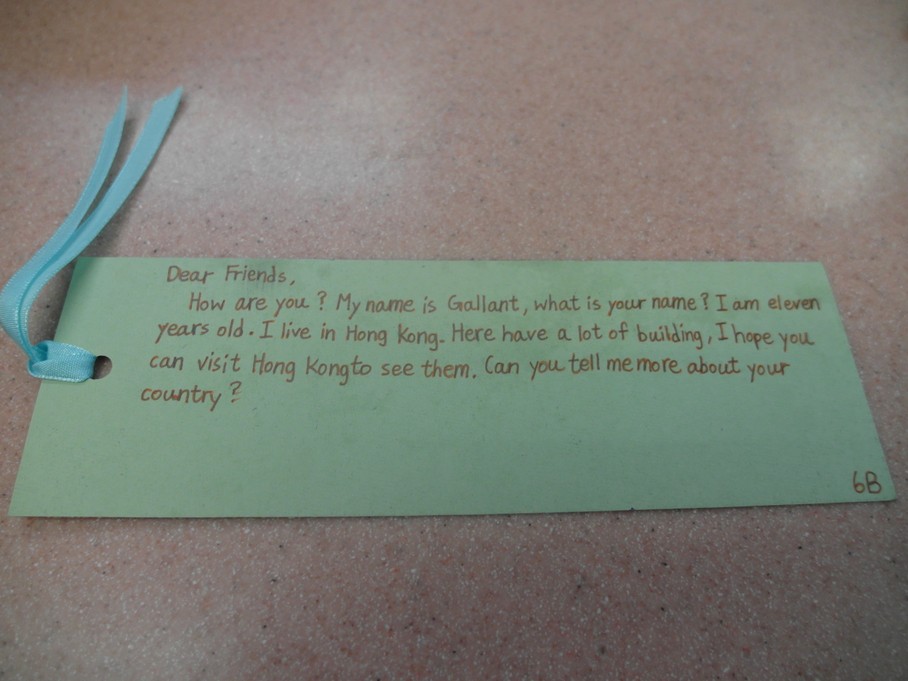 Dear Friends,
How are you? My name is Gallant, what is your name? I am eleven
years old. I live in Hong Kong. Here have a lot of building, I hope you
can visit Hong Kong to see them. Can you tell me more about your
country?
6B